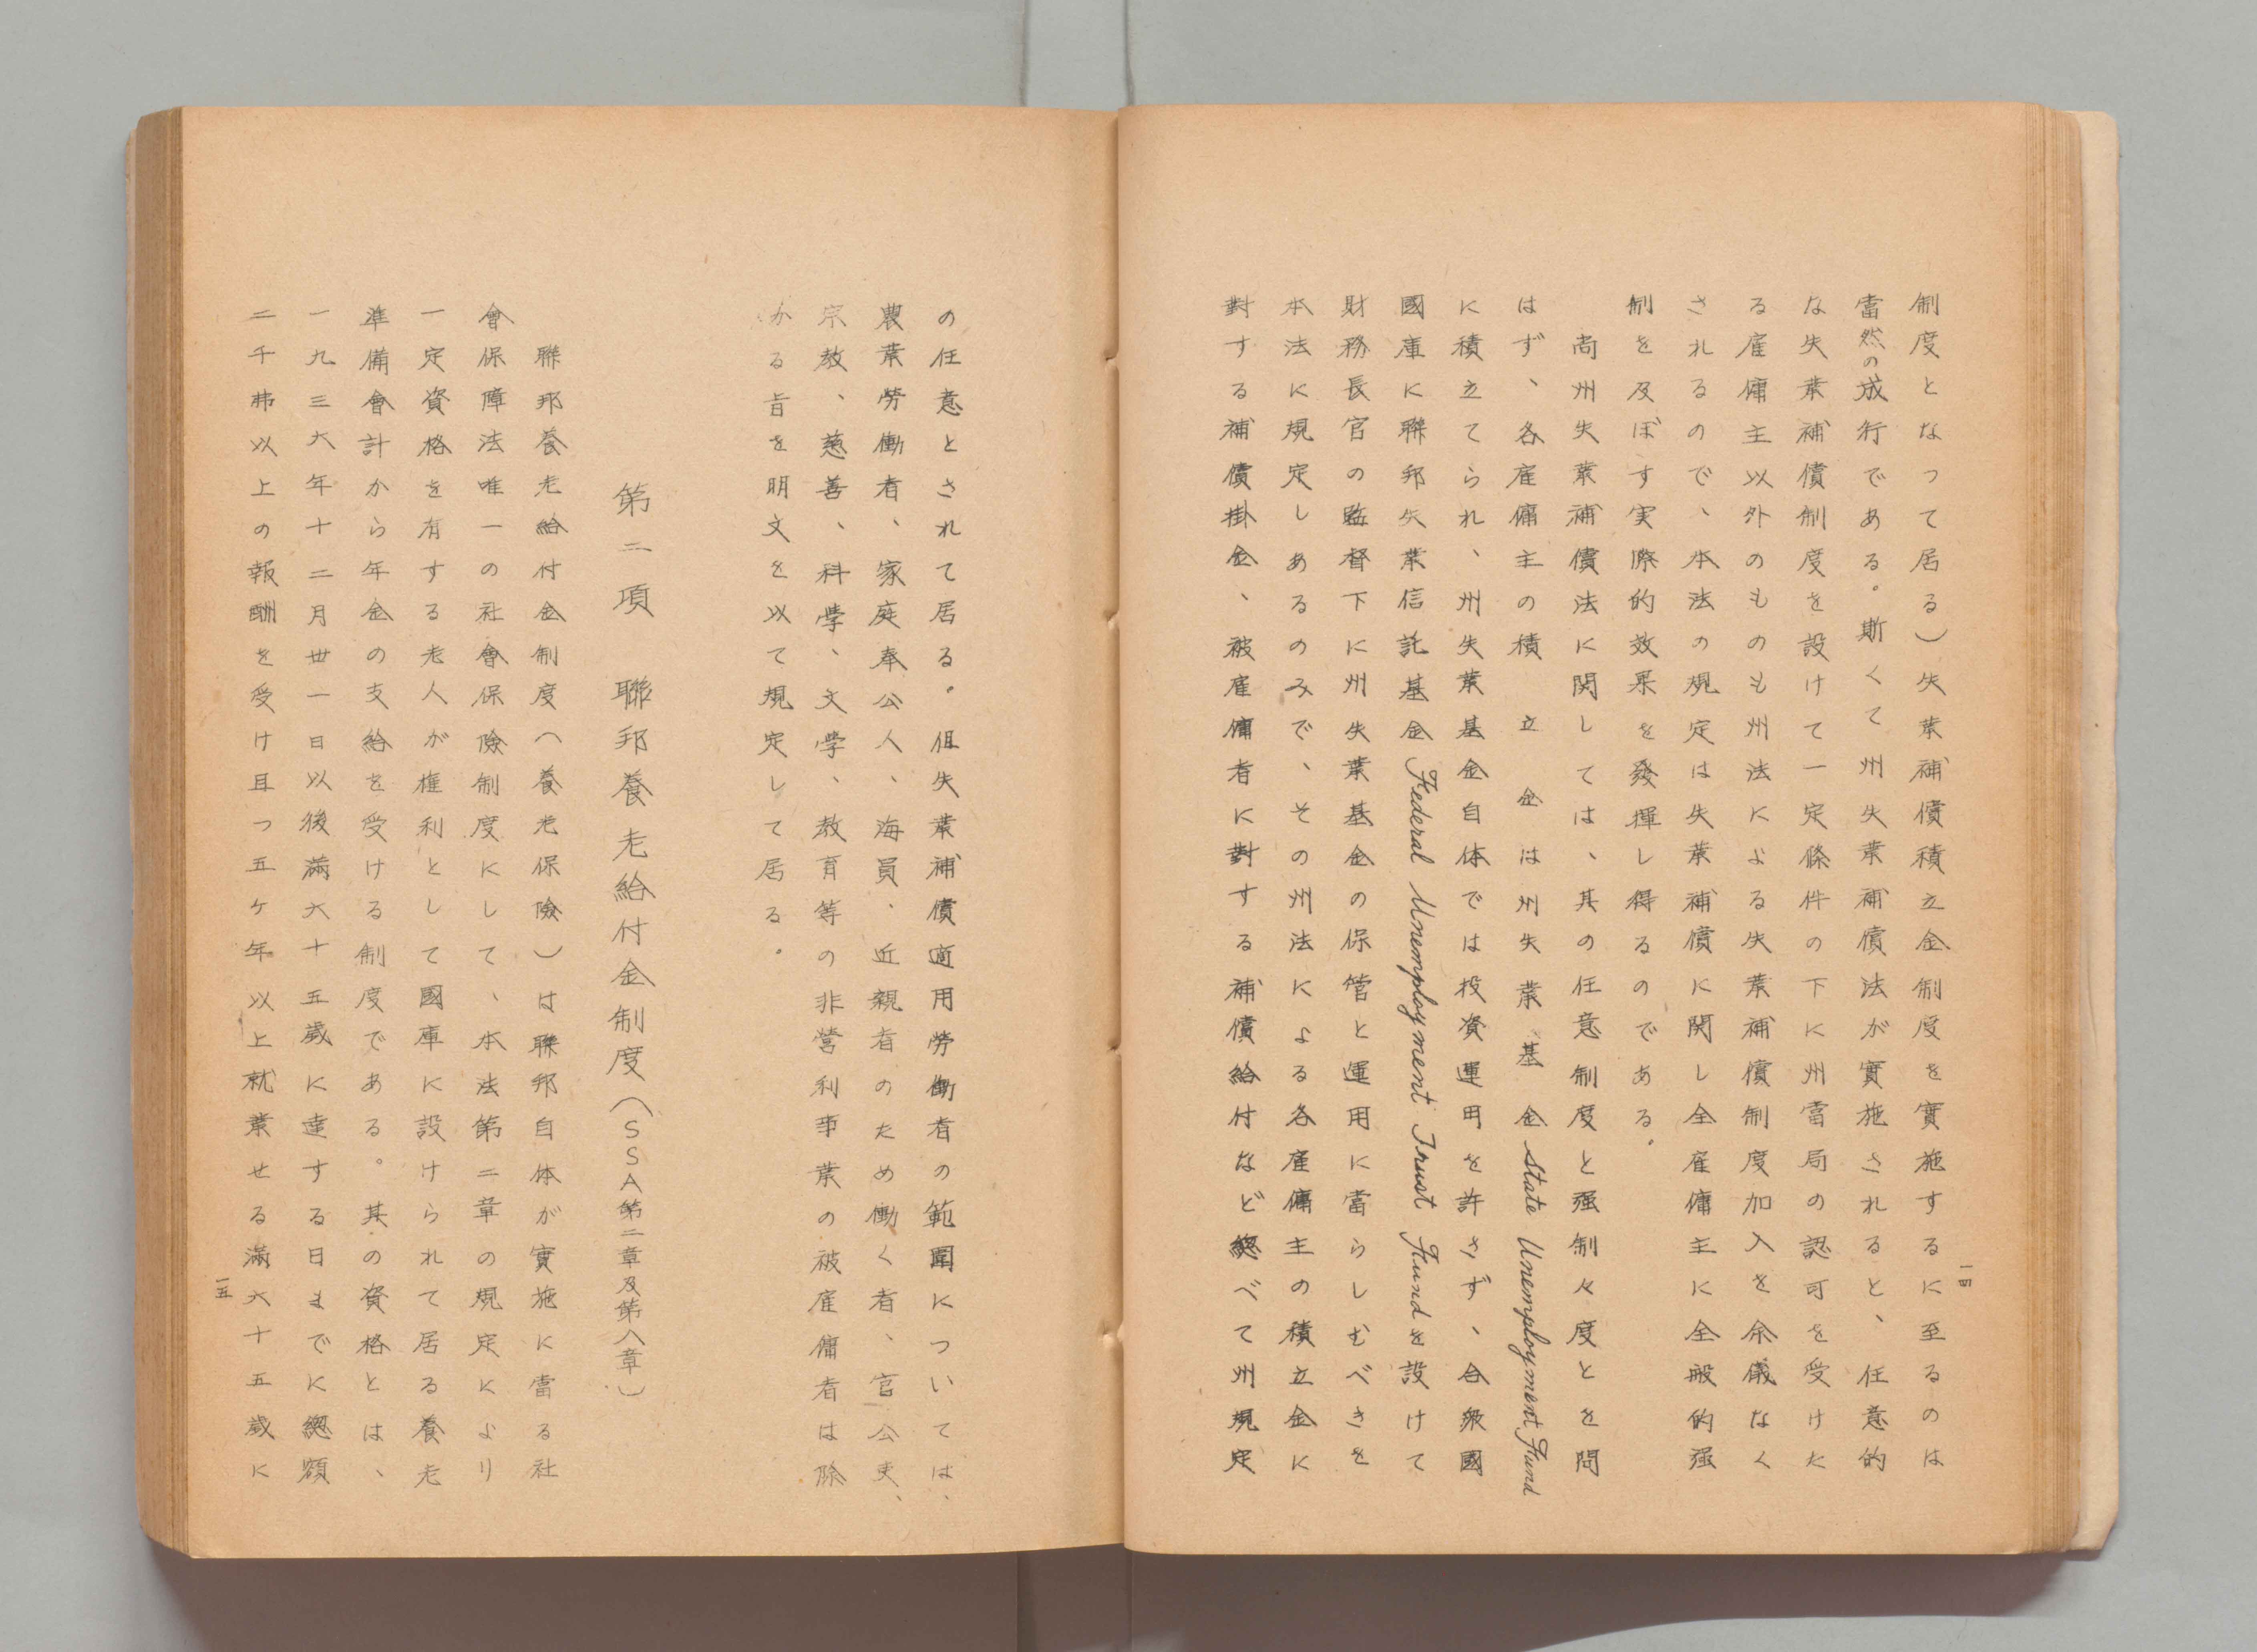 制度となって居る）失業補償積立金制度を實施するに至るのは
當然の成行である。斯くて州失業補償法が實施されると、任意的
な失業補償制度を設けて一定條件の下に州當局の認可を受けた
る雇傭主以外のものも州法による失業補償制度加入を余儀なく
されるので、本法の規定は失業補償に関し全雇傭主に全般的强
制を及ぼす実際的效果を發揮し得るのである。
尚州失業補償法に関しては、其の任意制度と强制々度とを問
はず、各雇傭主の積立金は州失業基金State Unemployment Fund
に積立てられ、州失業基金自体では投資運用を許さず、合衆國
國庫に聯邦失業信託基金Federal Unemployment Trust Fundを設けて
財務長官の監督下に州失業基金の保管と運用に當らしむべきを
本法に規定しあるのみで、その州法による各雇傭主の積立金に
對する補償掛金、被雇傭者に對する補償給付など總べて州規定
一四
の任意とされて居る。但失業補償適用勞働者の範圍については、
農業勞働者、家庭奉公人、海員、近親者のため働く者、官公吏、
宗教、慈善、科學、文學、教育等の非營利事業の被雇傭者は除
かる旨を明文を以て規定して居る。
第二項 聯邦養老給付金制度（SSA第二章及第八章）
聯邦養老給付金制度（養老保險）は聯邦自体が實施に當る社
會保障法唯一の社會保險制度にして、本法第二章の規定により
一定資格を有する老人が権利として國庫に設けられて居る養老
準備會計から年金の支給を受ける制度である。其の資格とは、
一九三六年十二月卅一日以後滿六十五歲に達する日までに總額
二千弗以上の報酬を受け且つ五ケ年以上就業せる滿六十五歲に
一五